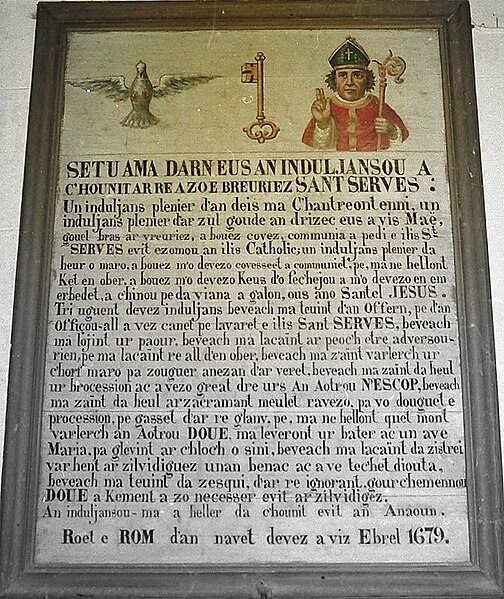 SETU AMA DARN EUS AN INDULJANSOU A
C'HOUNIT AR RE A ZO E BREURIEZ SANT SERVES :
Un induljans plenier d'an deis ma C'hantreont enni, un
induljans plenier d'ar zul goude an drizec eus a vis Maë,
gouel bras ar vreuriez, a bouez covez, communia a pedi e ilis St
SERVES evit ezomou an ilis Catholic; un induljans plenier da
heur o maro, a bouez m'o devezo covesseet a communiet, pe, ma ne hellont
Ket en ober, a bouez m'o devezo Keus d'o fec'hejou a m'o devezo en em
erbedet, a c'hinou pe da viana a galon, ous ano Santel JESUS.
Tri uguent devez induljans beveach ma teuint d'an Offern, pe d'an
Officou-all a vez canet pe lavaret e ilis Sant SERVES, beveach
ma lojint ur paour, beveach ma lacaint ar peoc'h etre adversou-
rien, pe ma lacaint re all d'en ober, beveach ma z'aint varlerc'h ur
c'horf maro pa zouguer anezan d'ar veret, beveach ma zaint da heul
ur brocession ac a vezo great dre urs An Aotrou N'ESCOP, beveach
ma zaint da heul ar zacramant meulet ravezo, pa vo douguet e
procession, pe gasset d'ar re glanv, pe, ma ne hellont quet mont
varlerc'h an Aotrou DOUE, ma leveront ur bater ac un ave
Maria, pa glevint ar c'hloch o sini, beveach ma lacaint da zistrei
var hent ar zilvidiguez unan benac ac a ve techet diouta,
beveach ma teuint da zesqui, d'ar re ignorant, gourc'hemennou
DOUE a Kement a zo necesser evit ar zilvidigez.
An induljansou-ma a heller da c'hounit evit an Anaoun.
Roet e ROM d'an navet devez a viz Ebrel 1679.